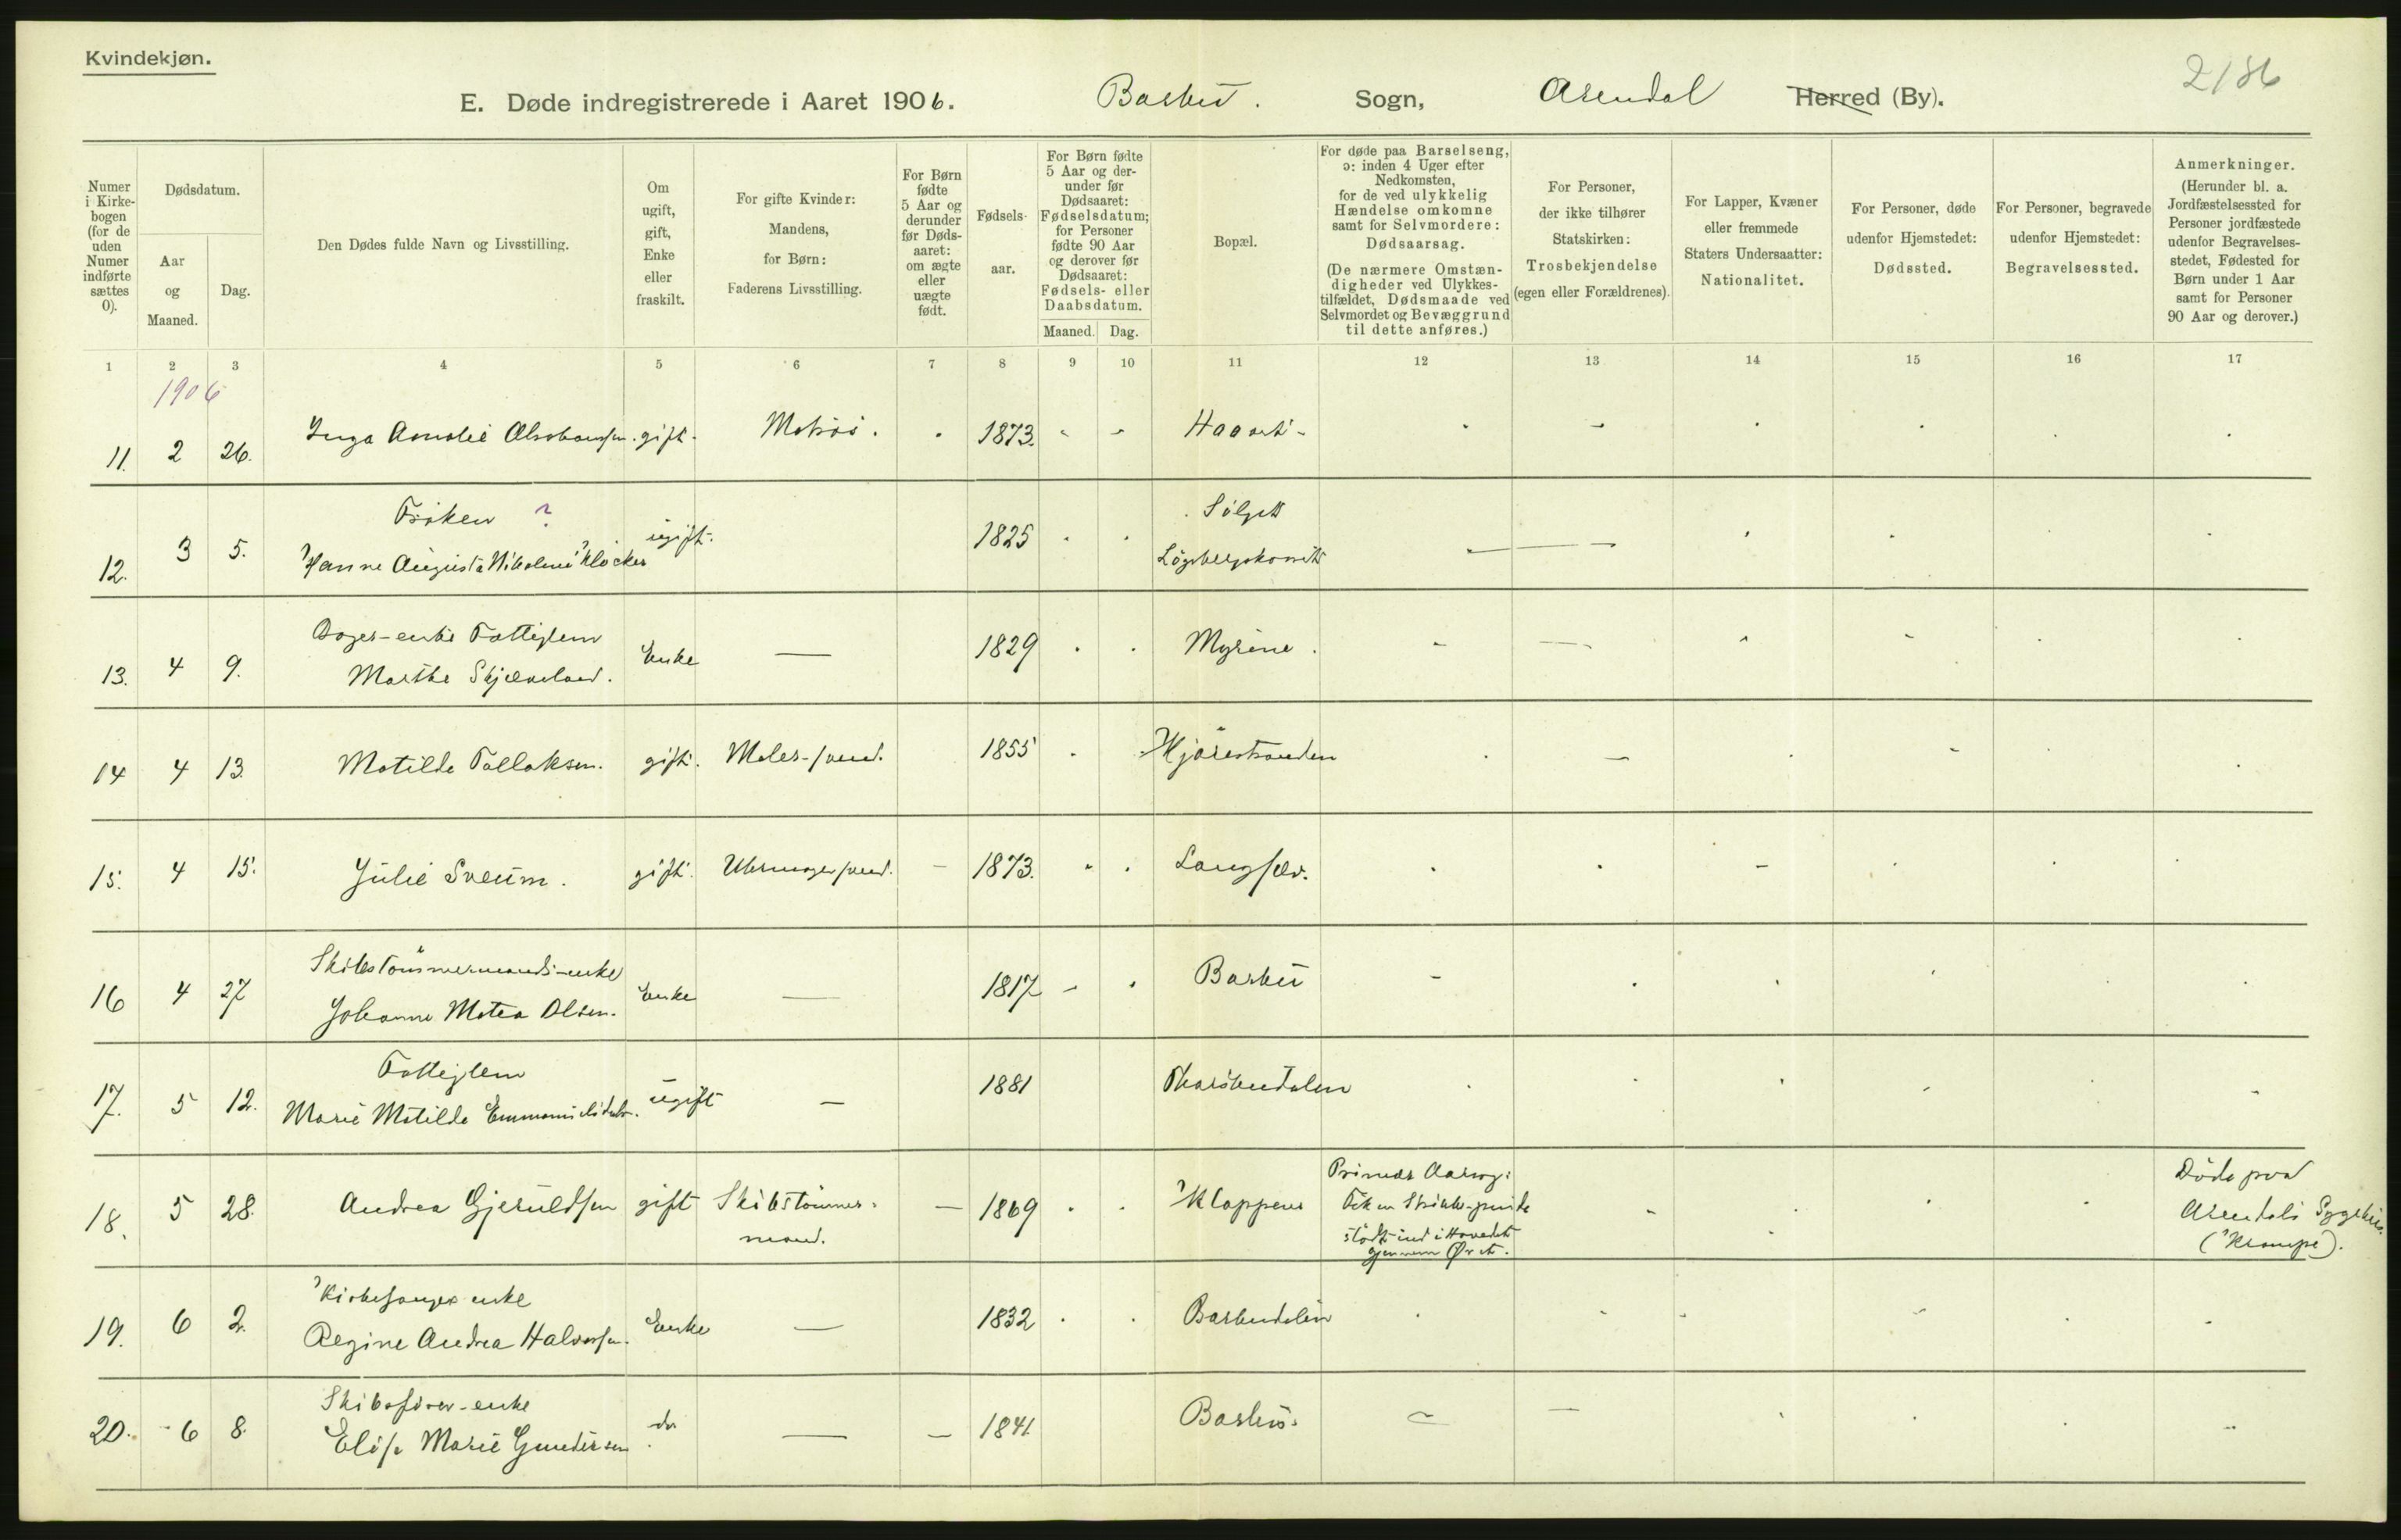 Kvindekjøn.
E. Døde indregistrerede i Aaret 1906.
Barbu. Sogn, Arendal Herred (By).
2186
Numer
i Kirke-
bogen
(for de
uden
Numer
indførte
sættes
0).
Dødsdatum.
Aar
og
Maaned.
Dag.
Den Dødes fulde Navn og Livsstilling.
Om
ugift,
gift,
Enke
eller
fraskilt.
For gifte Kvinder:
Mandens,
for Børn:
Faderens Livsstilling.
For Børn
fødte
5 Aar og
derunder
før Døds-
aaret:
om ægte
eller
uægte
født.
Fødsels-
aar.
For Børn fødte
5 Aar og der-
under før
Dødsaaret:
Fødselsdatum;
for Personer
fødte 90 Aar
og derover før
Dødsaaret:
Fødsels- eller
Daabsdatum.
Maaned. Dag.
Bopæl.
For døde paa Barselseng,
ɔ: inden 4 Uger efter
Nedkomsten,
for de ved ulykkelig
Hændelse omkomne
samt for Selvmordere:
Dødsaarsag.
(De nærmere Omstæn-
digheder ved Ulykkes-
tilfældet, Dødsmaade ved
Selvmordet og Bevæggrund
til dette anføres.)
For Personer,
der ikke tilhører
Statskirken:
Trosbekjendelse
(egen eller Forældrenes).
For Lapper, Kvæner
eller fremmede
Staters Undersaatter:
Nationalitet.
For Personer, døde
udenfor Hjemstedet:
Dødssted.
For Personer, begravede
udenfor Hjemstedet:
Begravelsessted.
Anmerkninger.
(Herunder bl. a.
Jordfæstelsessted for
Personer jordfæstede
udenfor Begravelses-
stedet, Fødested for
Børn under 1 Aar
samt for Personer
90 Aar og derover.)
1 2 3 4 5 6 7 8 9 10 11 12 13 14 15 16 17
1906
11. 2 26. Inga Amalie gift. Matros. 1873.
Frøken ?
12. 3 5. Hanne Augusta Klöcker ugift. 1825
Enke Fattiglem
13. 4 9. Marthe Skjæveland. Enke — 1829 Myrene.
14 4 13. Matilde Tallaksen. gift. Maler-svend. 1855
15. 4 15. Julie Sveum. gift. Uhrmagersvend. — 1873. Langsæv.
Skibstømmermands-enke
16 4 27 Johanne Matea Olsen. Enke — 1817 Barbu
Fattiglem
17. 5 12. Marie Matilde ugift — 1881
18. 5 28. Andrea Gjeruldsen gift Skibstømmer-
mand. — 1869 Kloppene
Primær Aarsag:
Fik en Strikke-pinde
stødt ind i Hovedet
gjennem Øret.
Døde paa
Arendals Sygehus.
(Krampe).
Kirkesanger enke
19. 6 2. Regine Andrea Halvorsen. Enke — 1832 Barbudalen
Skibsfører-enke
20. 6 8. Elise Marie Gundersen do. — — 1841 Barbu.